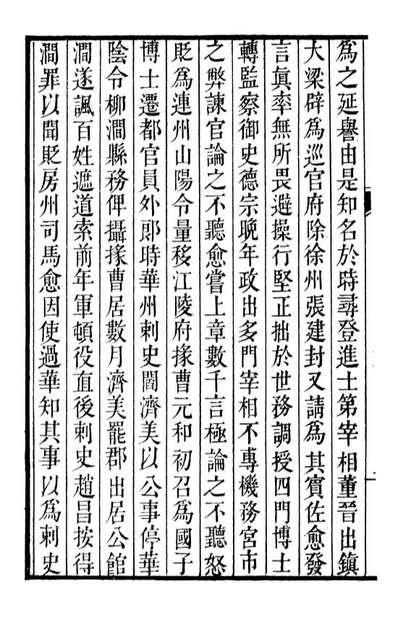 爲之延譽由是知名於時尋登進士第宰相董晉出鎮
大梁辟爲巡官府除徐州張建封又請爲其賓佐愈發
言眞率無所畏避操行堅正拙於世務調授四門博士
轉監察御史德宗晚年政出多門宰相不專機務宮市
之弊諫官論之不聽愈嘗上章數千言極論之不聽怒
貶爲連州山陽令量移江陵府掾曹元和初召爲國子
博士遷都官員外郎時華州刺史閻濟美以公事停華
陰令柳澗縣務俾攝掾曹居數月濟美罷郡出居公館
澗遂諷百姓遮道索前年軍頓役直後刺史趙昌按得
澗罪以聞貶房州司馬愈因使過華知其事以爲刺史